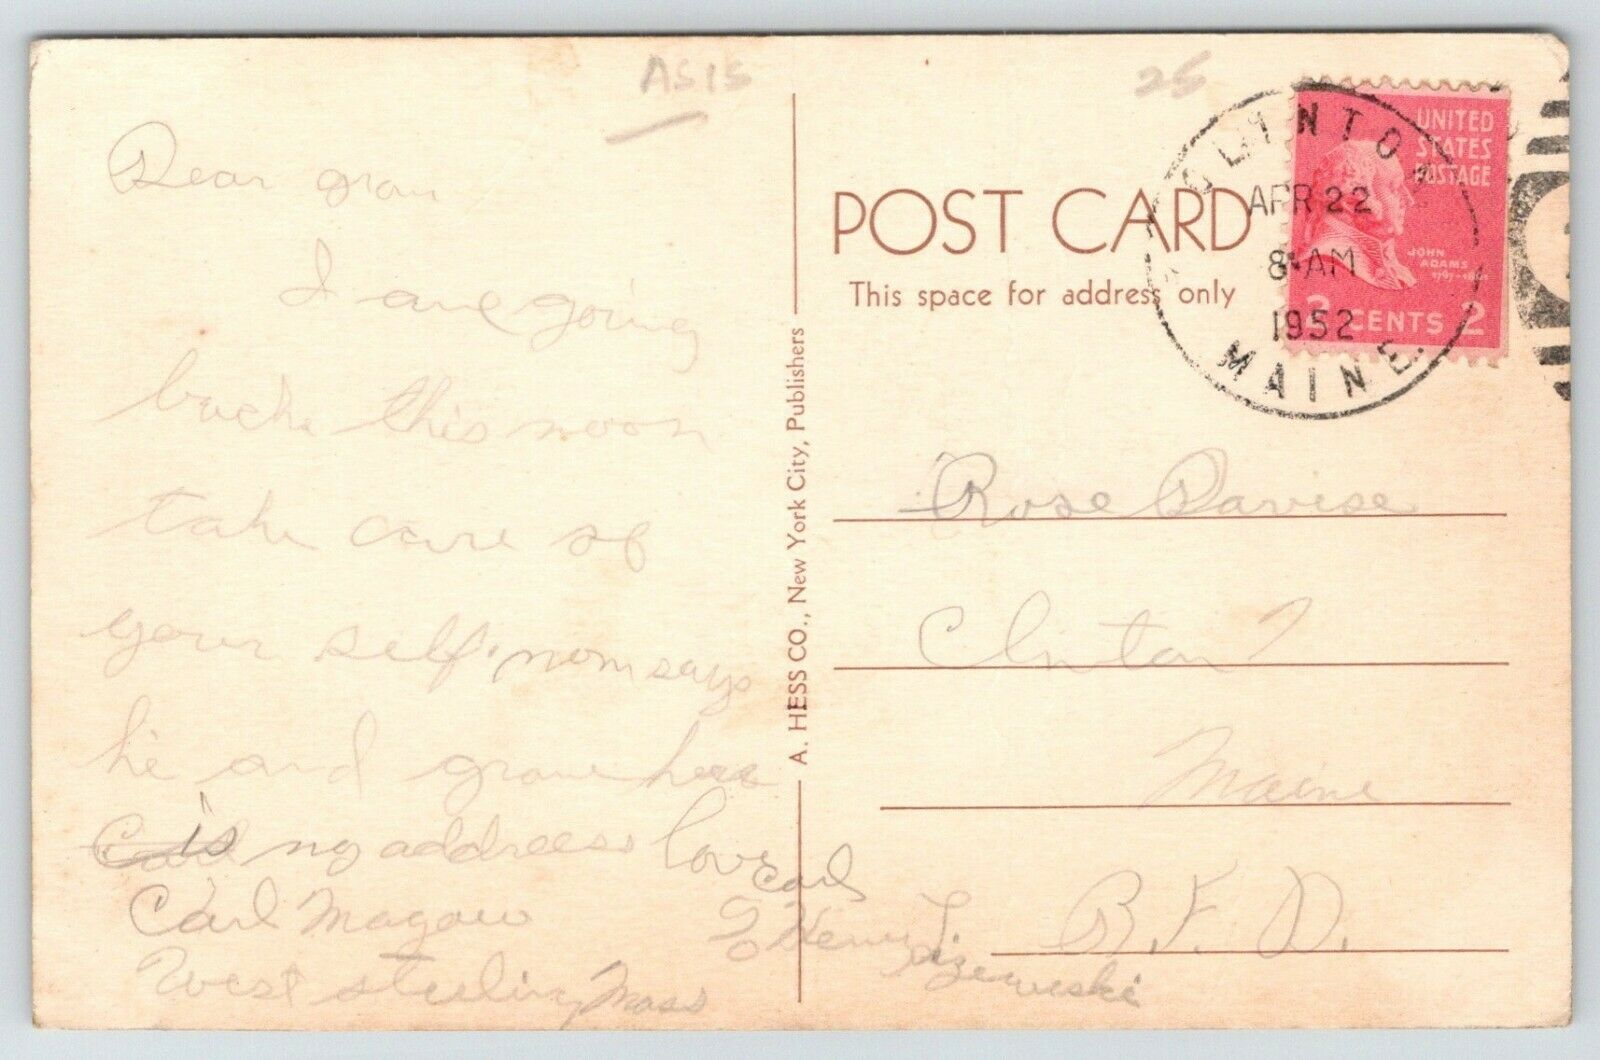 AS IS
25
Dear gram
I are going
back this noon
take care of
your self. mom says
he and gram here
is my addreess love Carl
Carl Magow
% Henry J.
West sterling Mass
A. HESS CO., New York City, Publishers
POST CARD
This space for address only
CLINTON
APR 22
8 AM
1952
MAINE
UNITED
STATES
POSTAGE
JOHN
ADAMS
2 CENTS 2
Rose
Clinton
Maine
R.F.D.